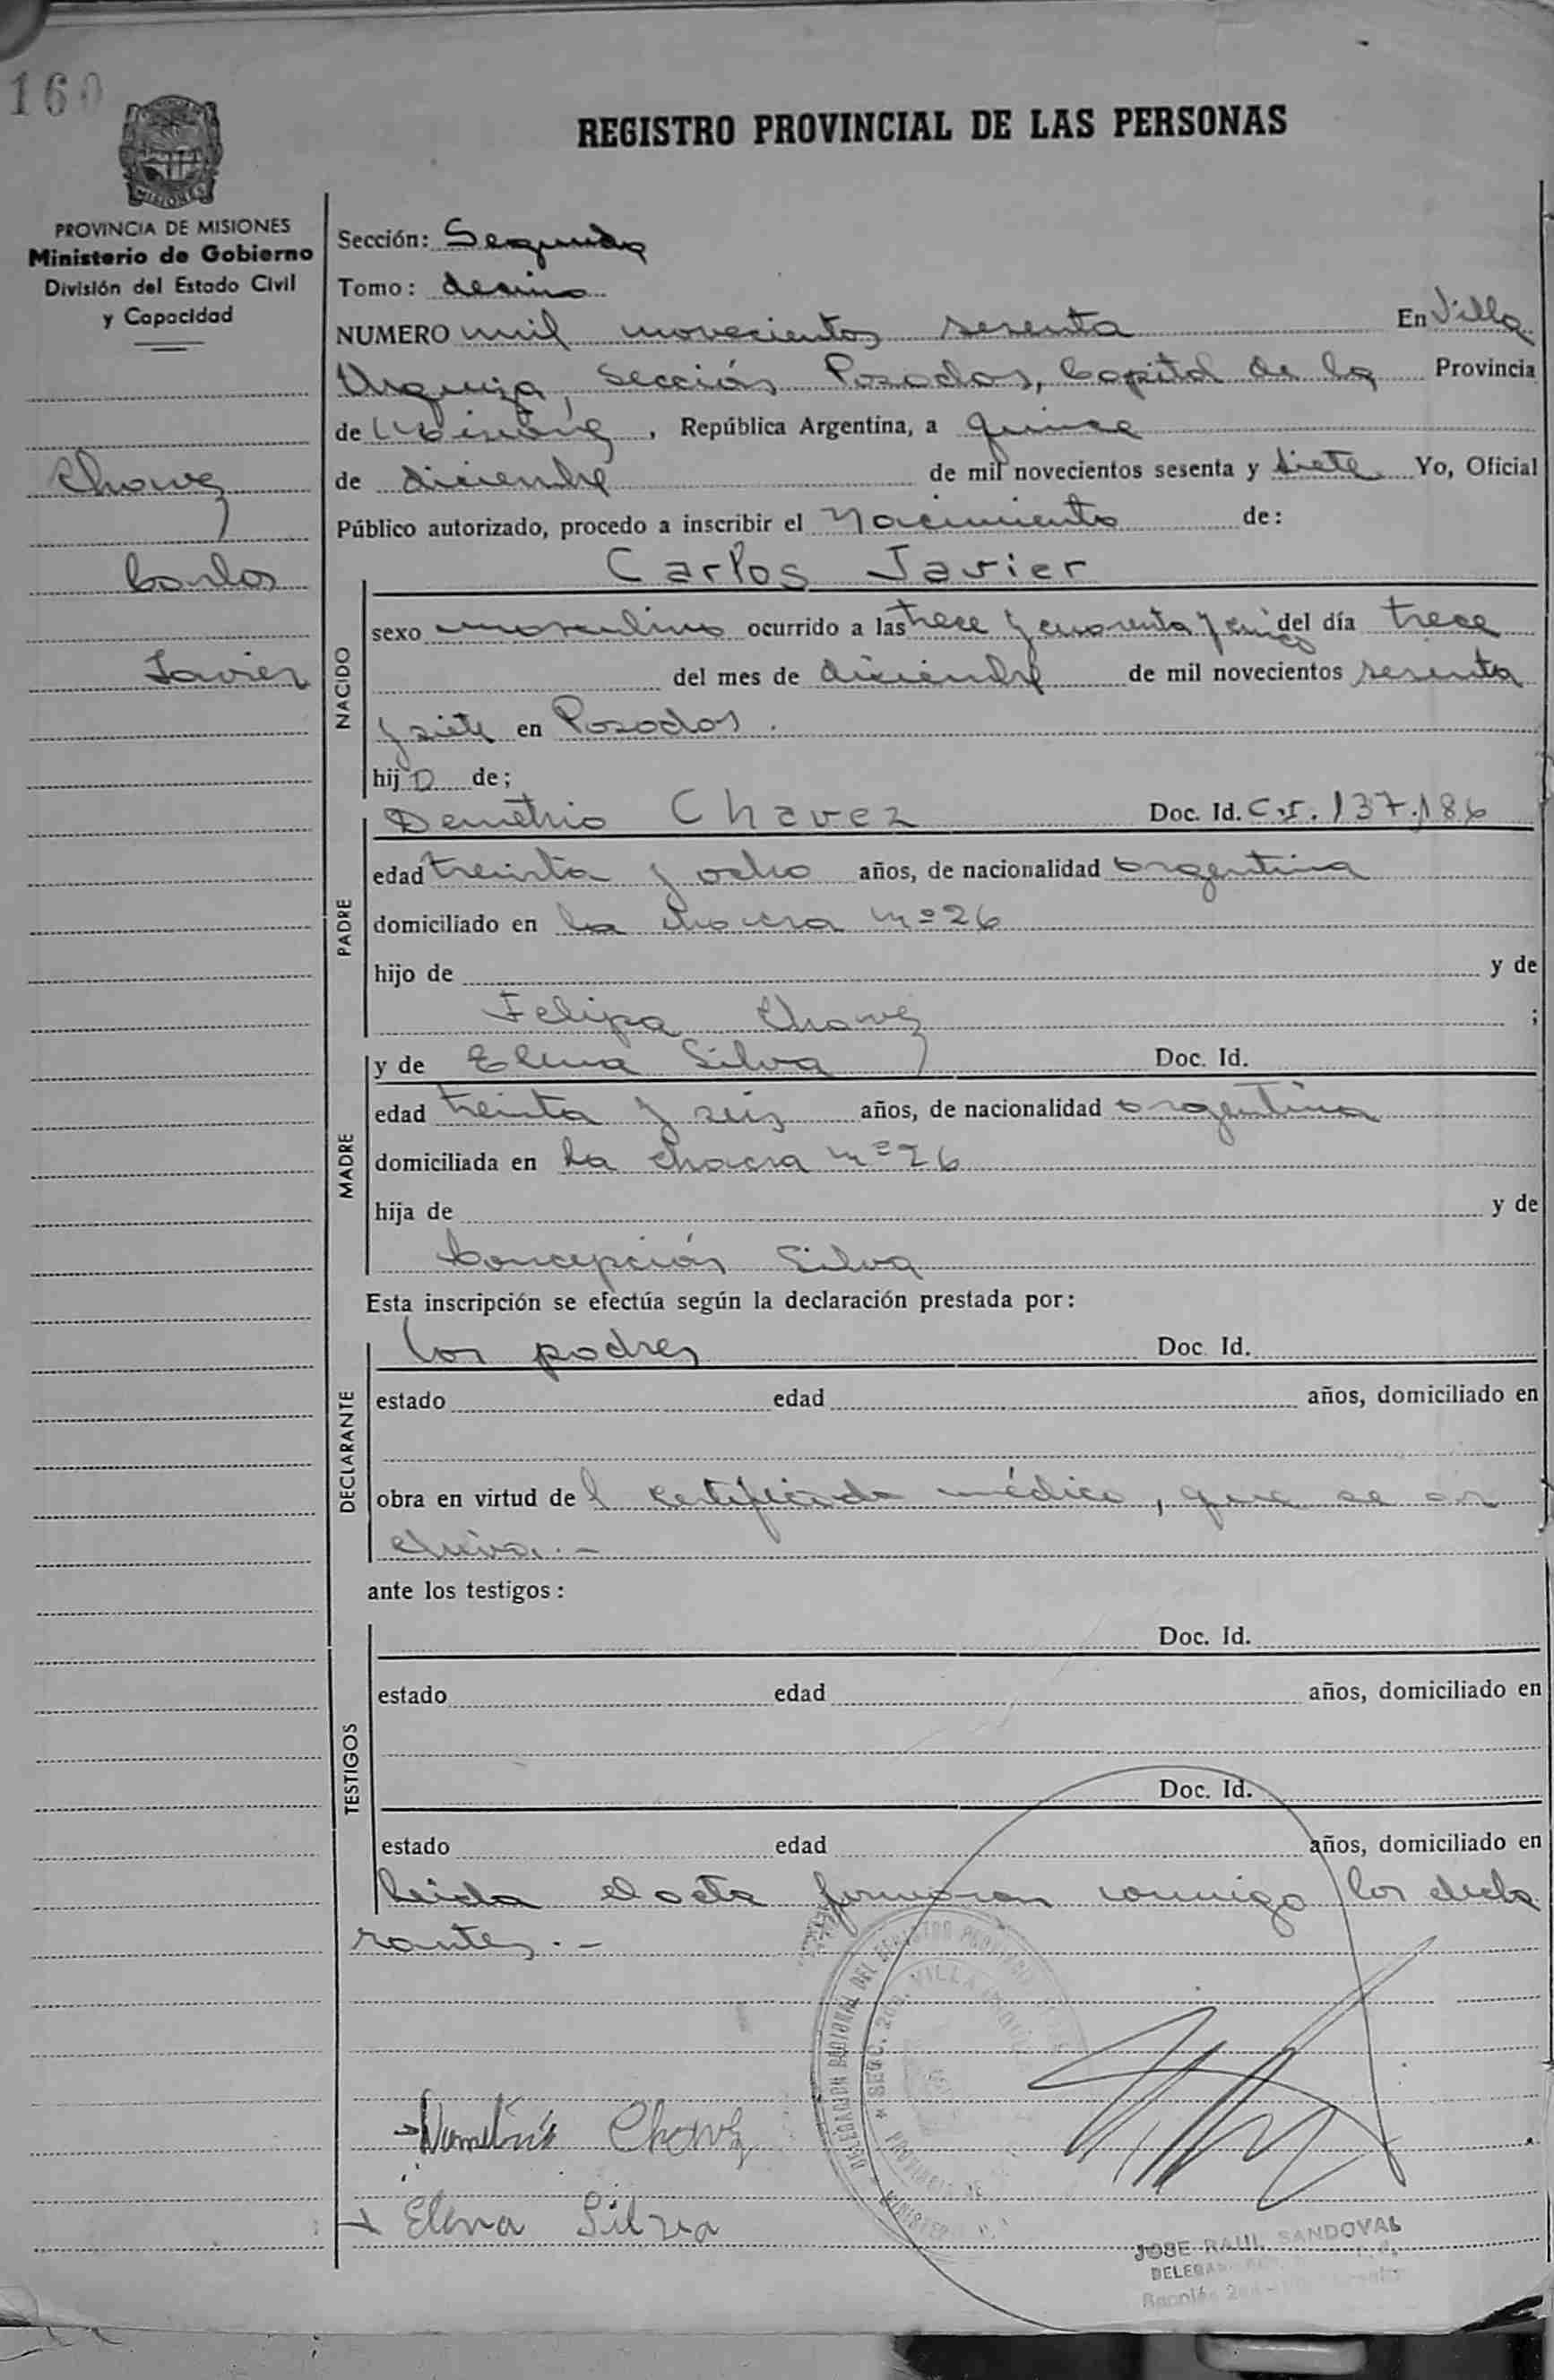 160
REGISTRO PROVINCIAL DE LAS PERSONAS
MISIONES
PROVINCIA DE MISIONES
Ministerio de Gobierno
División del Estado Civil
y Capacidad
Chavez
Carlos
Javier
Sección: Segunda
Tomo: decimo
NUMERO mil novecientos sesenta En Villa
Urquiza, Sección Posadas, Capital de la Provincia
de Misiones, República Argentina, a quince
de diciembre de mil novecientos sesenta y siete Yo, Oficial
Público autorizado, procedo a inscribir el Nacimiento de:
Carlos Javier
NACIDO
sexo masculino ocurrido a las trece y cuarenta y cinco del día trece
del mes de diciembre de mil novecientos sesenta
y siete en Posadas.
hijo de;
PADRE
Demetrio Chavez Doc. Id. C.I. 137.186
edad treinta y ocho años, de nacionalidad argentina
domiciliado en la chacra nº 26
hijo de y de
Felipa Chavez ;
MADRE
y de Elena Silva Doc. Id.
edad treinta y seis años, de nacionalidad argentina
domiciliada en la chacra nº 26
hija de y de
Concepción Silva
Esta inscripción se efectúa según la declaración prestada por:
DECLARANTE
los padres Doc. Id.
estado edad años, domiciliado en
obra en virtud del certificado médico, que se ar
chiva.-
ante los testigos:
TESTIGOS
Doc. Id.
estado edad años, domiciliado en
Doc. Id.
estado edad años, domiciliado en
leida el acta firmaran conmigo los decla
rantes.-
DELEGACION REGIONAL DEL REGISTRO
SECC. 2da. VILLA
PROVINCIA DE
Demetrio Chavez
Elena Silva
JOSE RAUL SANDOVAL